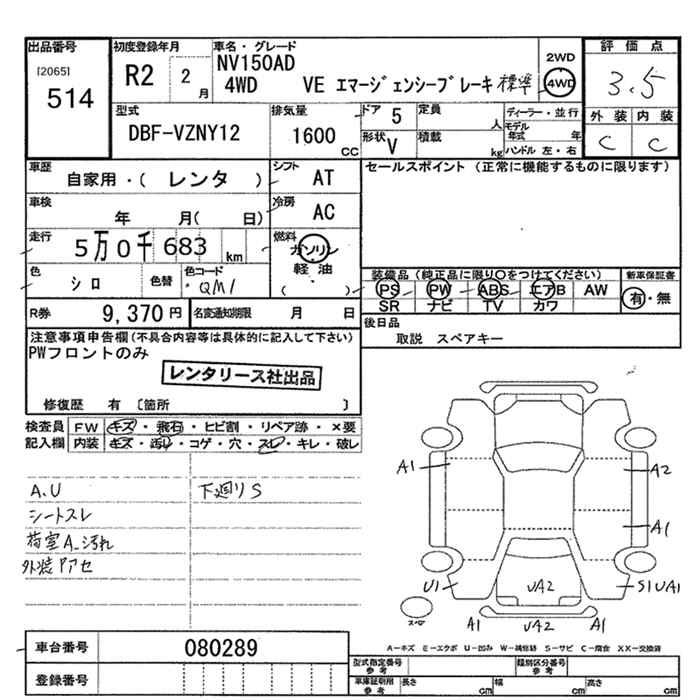 出品番号
[2065]
514
初度登録年月
R2 2 月
車名・グレード
NV150AD
4WD VE エマージェンシーブレーキ 標準
2WD
4WD
評価点
3.5
外装 内装
C C
型式
DBF-VZNY12
排気量
1600 CC
ドア 5
定員 人
形状 V
積載 kg
ディーラー・並行
モデル年式 年
ハンドル 左・右
車歴
自家用・( レンタ )
シフト
AT
車検
年 月( 日)
冷房
AC
走行
5万0千683 km
燃料
ガソリン
軽油
( )
色
シロ
色替
色コード
QM1
セールスポイント (正常に機能するものに限ります)
装備品 (純正品に限り○をつけてください)
PS PW ABS エアB AW
SR ナビ TV カワ
新車保証書
有・無
R券 9,370円
名変通知期限 月 日
後日品
取説 スペアキー
注意事項申告欄(不具合内容等は具体的に記入して下さい)
PWフロントのみ
レンタリース社出品
修復歴 有 〔箇所 〕
検査員 FW キズ・飛石・ヒビ割・リペア跡・×要
記入欄 内装 キズ・汚れ・コゲ・穴・スレ・キレ・破レ
A.U 下廻りS
シートスレ
荷室A.汚れ
外装Pアセ
A1 A2
A1
U1 UA2 S1UA1
A1 UA2 A1
スペア
A-キズ E-エクボ U-凹み W-補修跡 S-サビ C-腐食 XX-交換済
車台番号 080289
登録番号
型式指定番号 参考
類別区分番号 参考
車庫証明用 参考
長さ cm 幅 cm 高さ cm